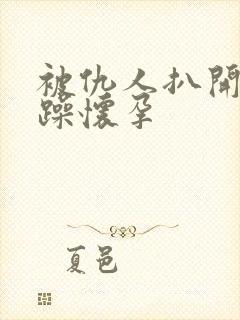 被仇人扒開
躁懷孕
夏邑